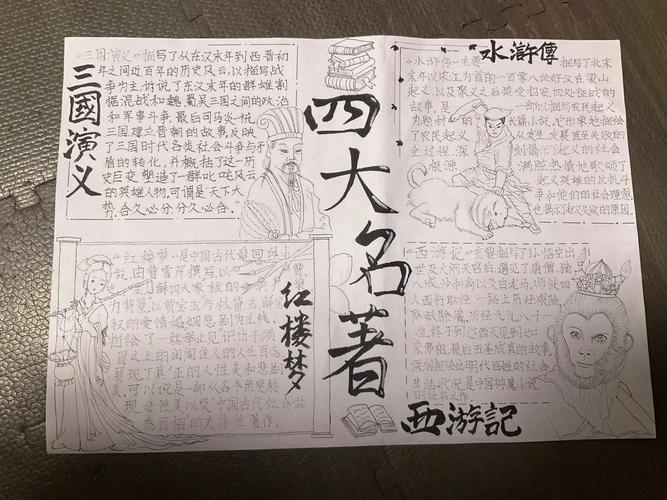 四大名著
三國演义
"三国演义"描写了从东汉末年到西晋初
年之间近百年的历史风云,以描写战
争为主,诉说了东汉末年的群雄割
据混战和魏蜀吴三国之间的政治
和军事斗争,最后司马炎一统
三国,建立晋朝的故事,反映
了三国时代各类社会斗争与矛
盾的转化,并概括了这一历
史巨变,塑造了一群叱咤风云
的英雄人物,可谓是天下大
势,合久必分,分久必合。"
水滸傳
"水浒传"主要描写了北宋
末年以宋江为首的一百零八位好汉在梁山
起义,以及聚义之后接受招安,四处征战的
故事,是一部以描写农民起义
为题材的长篇小说,它形象地描绘
了农民起义从发生、发展直至失败的
全过程,深刻揭示了起义的社会
根源,满腔热情地歌颂了
起义英雄的反抗斗
争和他们的社会理想,
也揭示了起义失败的原因。
红楼梦
"红楼梦"是中国古代章回体小
说,由曹雪芹撰写,以
薛四大家族的
为背景,以贾宝玉与林黛玉、薛宝
钗的爱情婚姻悲剧为主线,
描绘了一些举止见识出于须
眉之上的闺阁佳人的人生百态,
展现了真正的人性美和悲剧
美,可以说是一部从各个角度展
现女性美以及中国古代社会世
态百相的史诗性著作。
西游記
"西游记"主要描写了孙悟空出
世及大闹天宫后,遇见了唐僧、猪
八戒、沙和尚以及白龙马,师徒四
人西行取经,一路上历经艰险,
降妖除魔,历经九九八十
一难,终于到达西天见到如
来佛祖,最后五圣成真的故事,
深刻描绘出明代百姓的社会
生活状况,是中国神魔小说